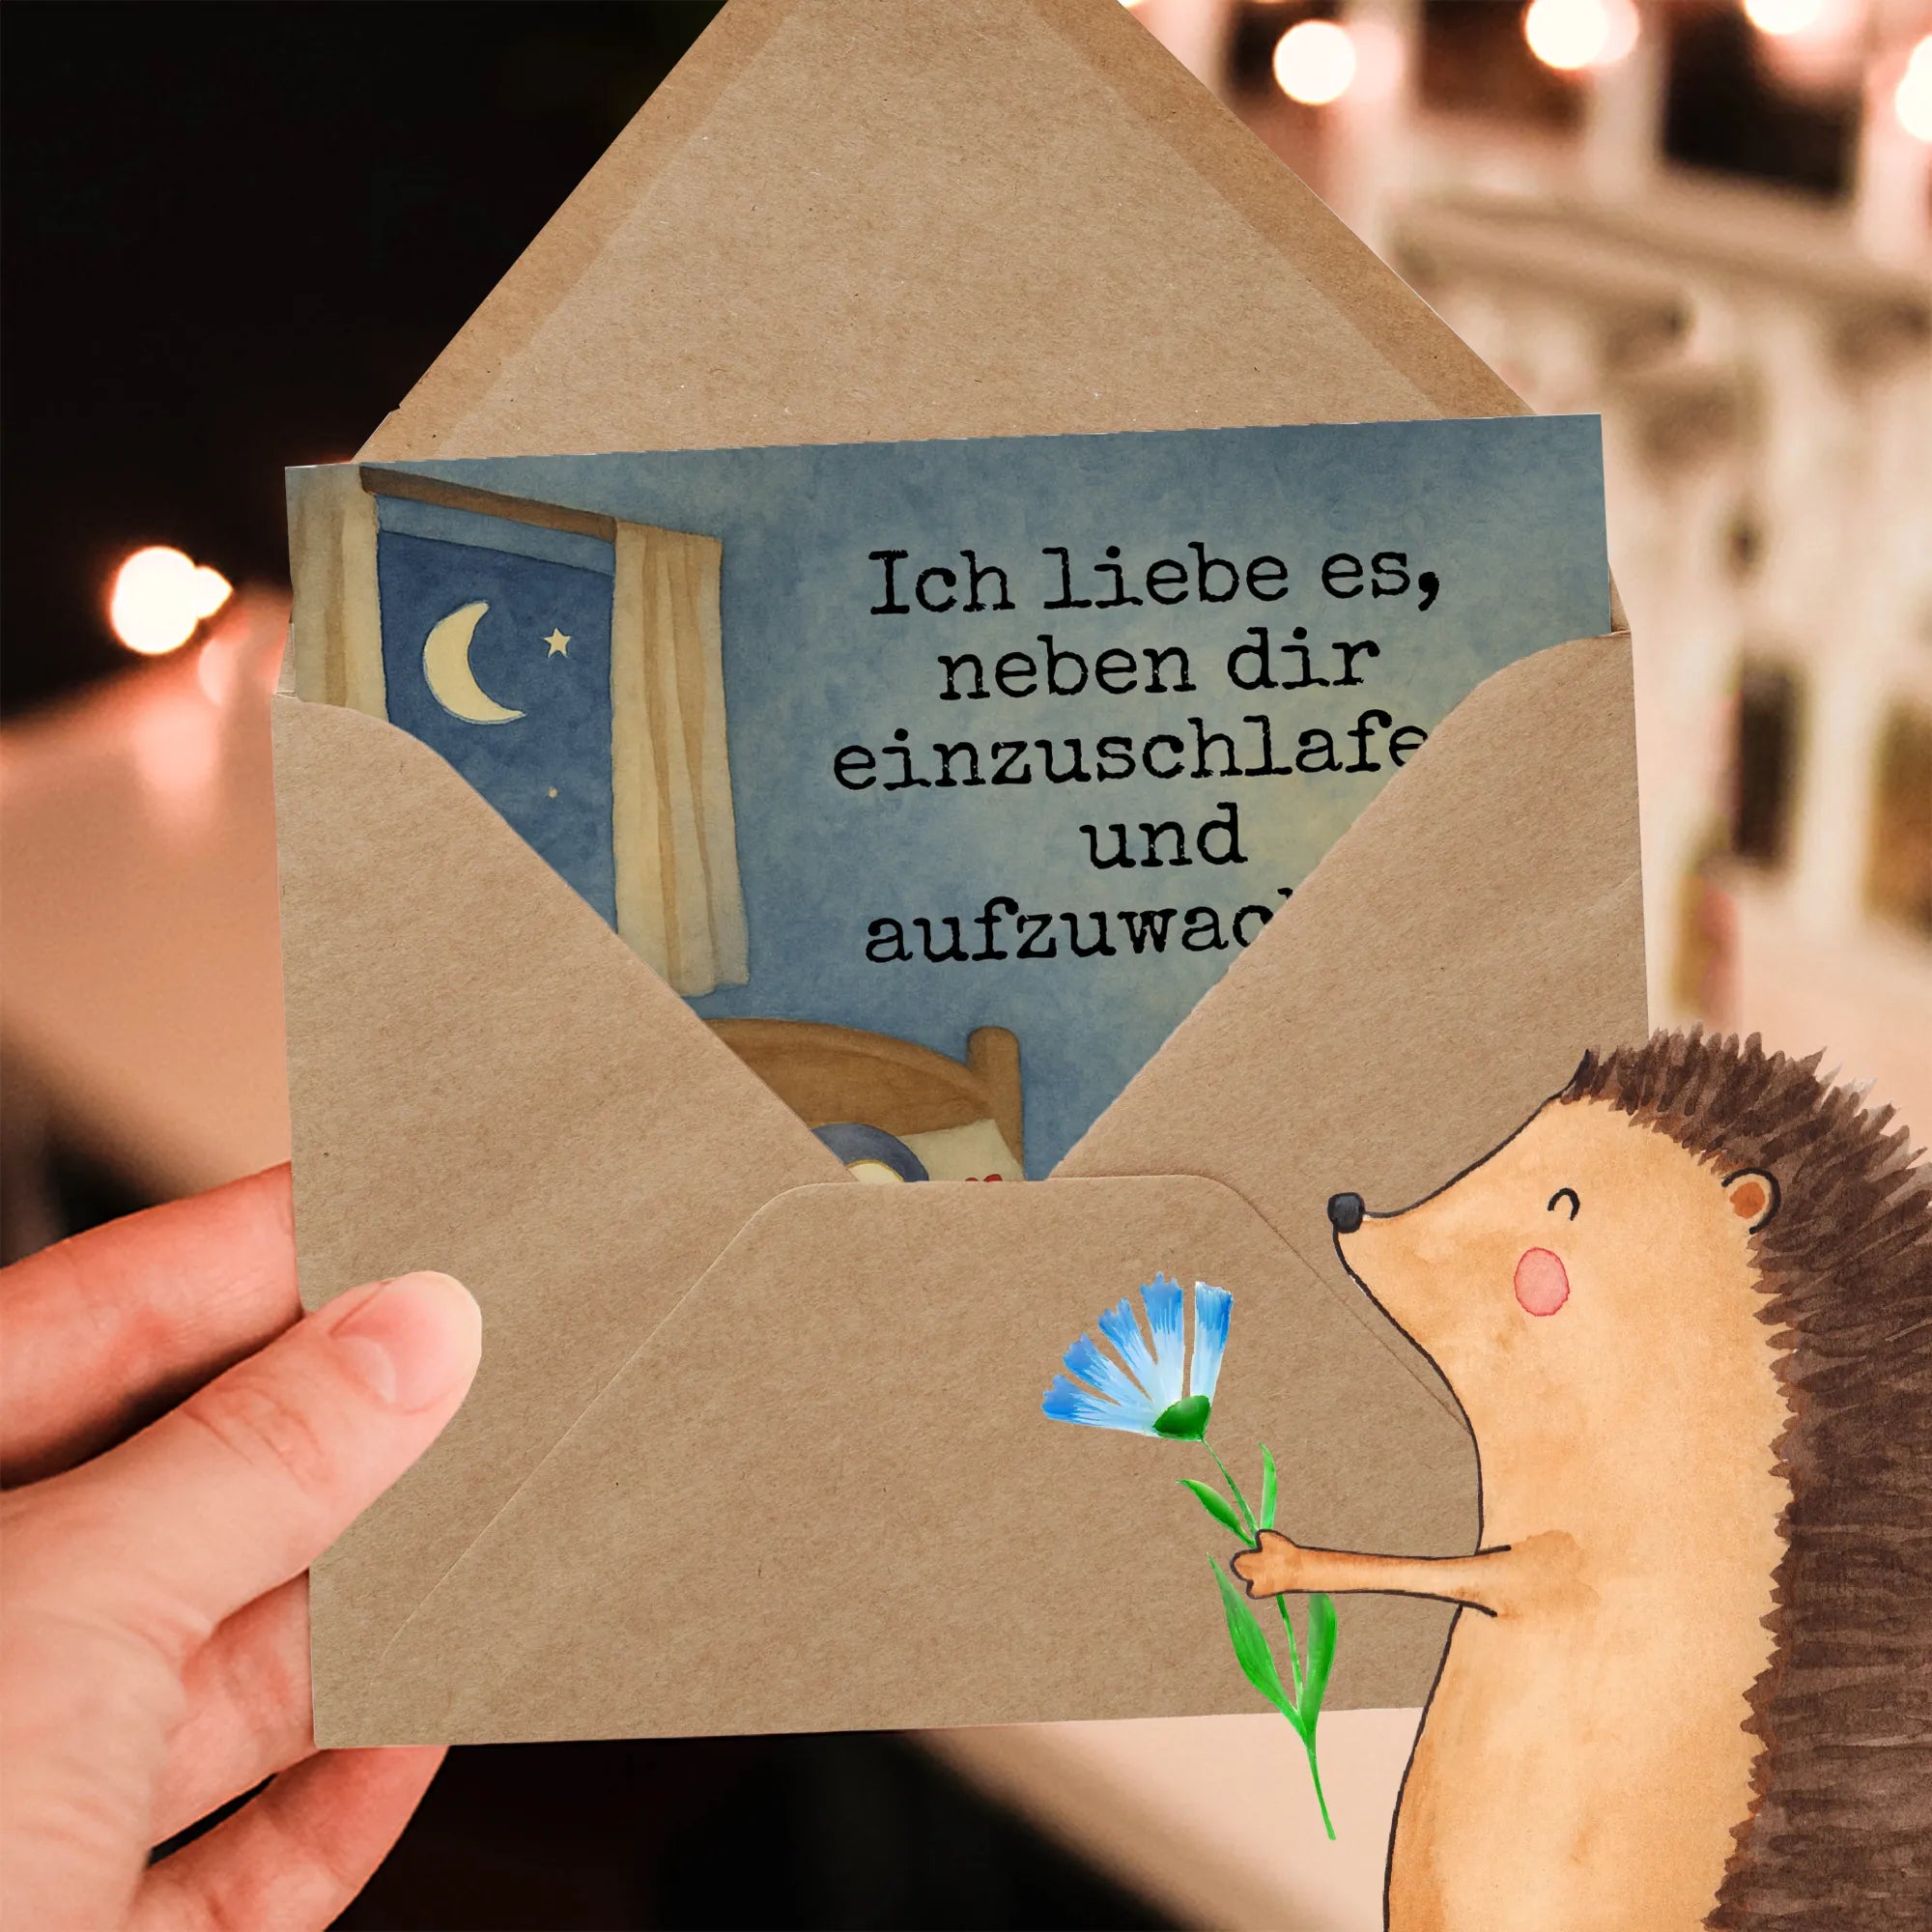 Ich liebe es,
neben dir
einzuschlafe
und
aufzuwac